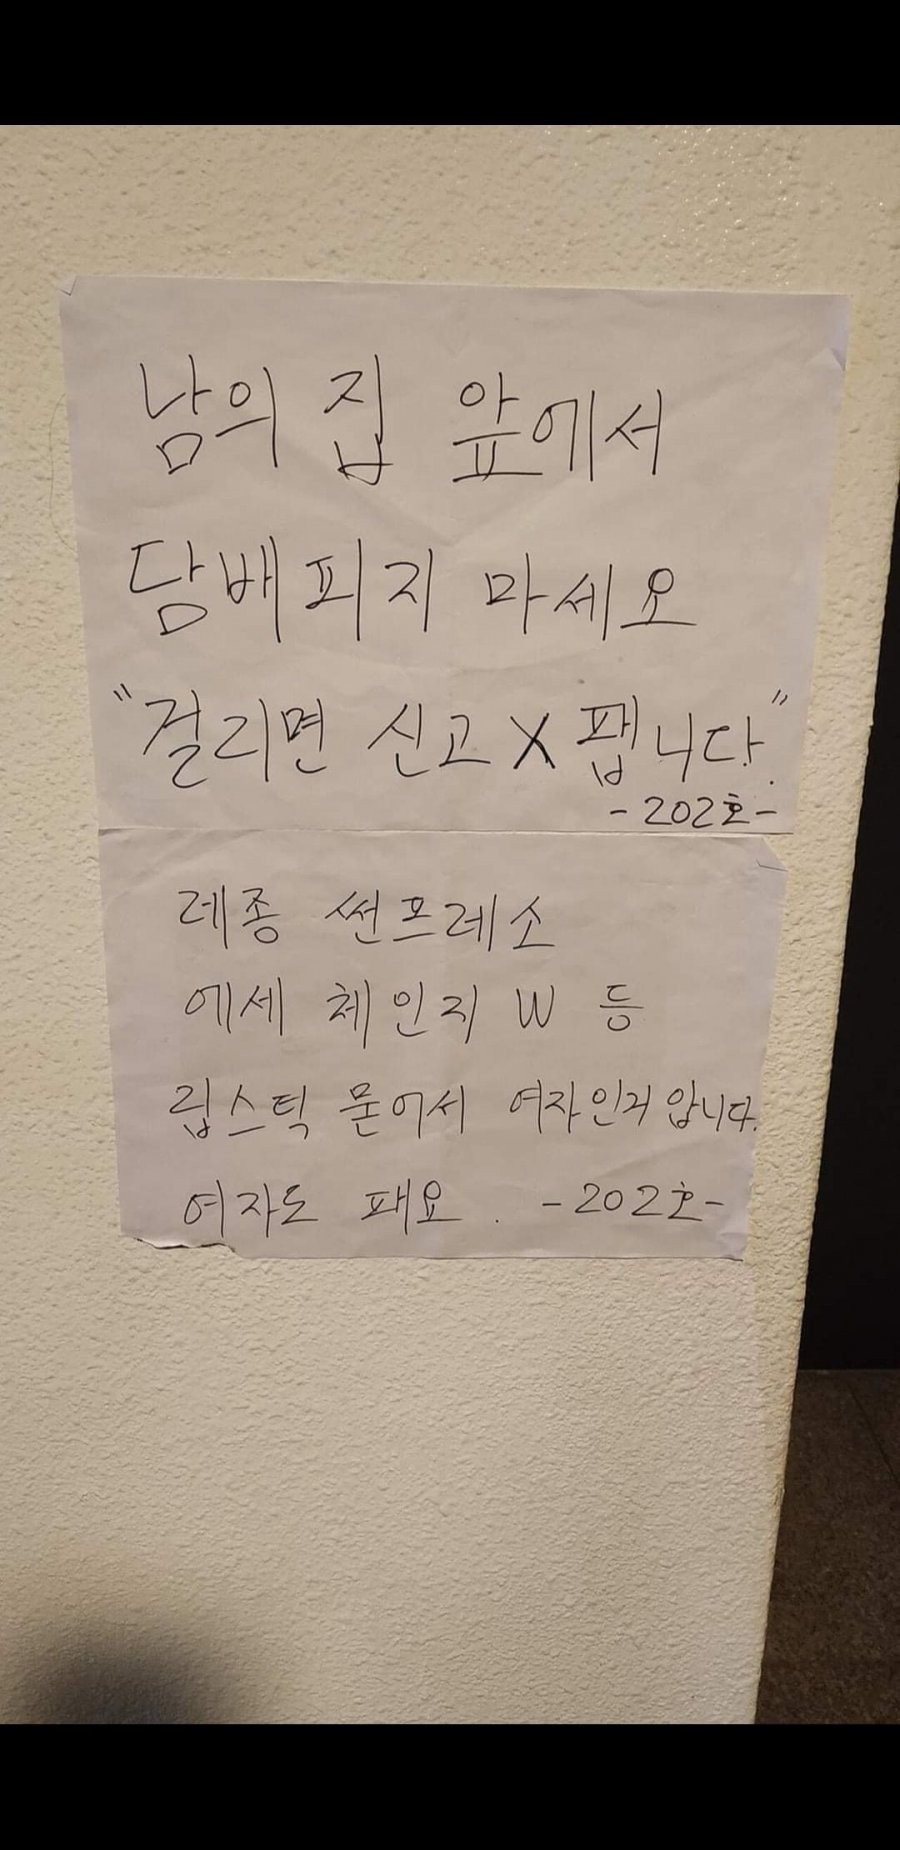 남의 집 앞에서
담배피지 마세요
"걸리면 신고X 팹니다."
-202호-
레종 썬프레소
에세 체인지 W 등
립스틱 묻어서 여자인거 압니다.
여자도 패요. -202호-